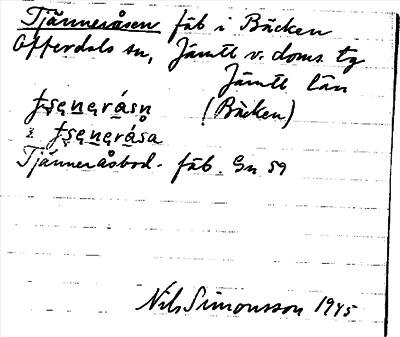 Tjänneråsen fäb i Bäcken
Offerdals sn, Jämtl v. doms. tg
Jämtl län
fseneråsn (Bäcken)
i fseneråsa
Tjänneråsbod. fäb. Gn 59
Nils Simonsson 1945